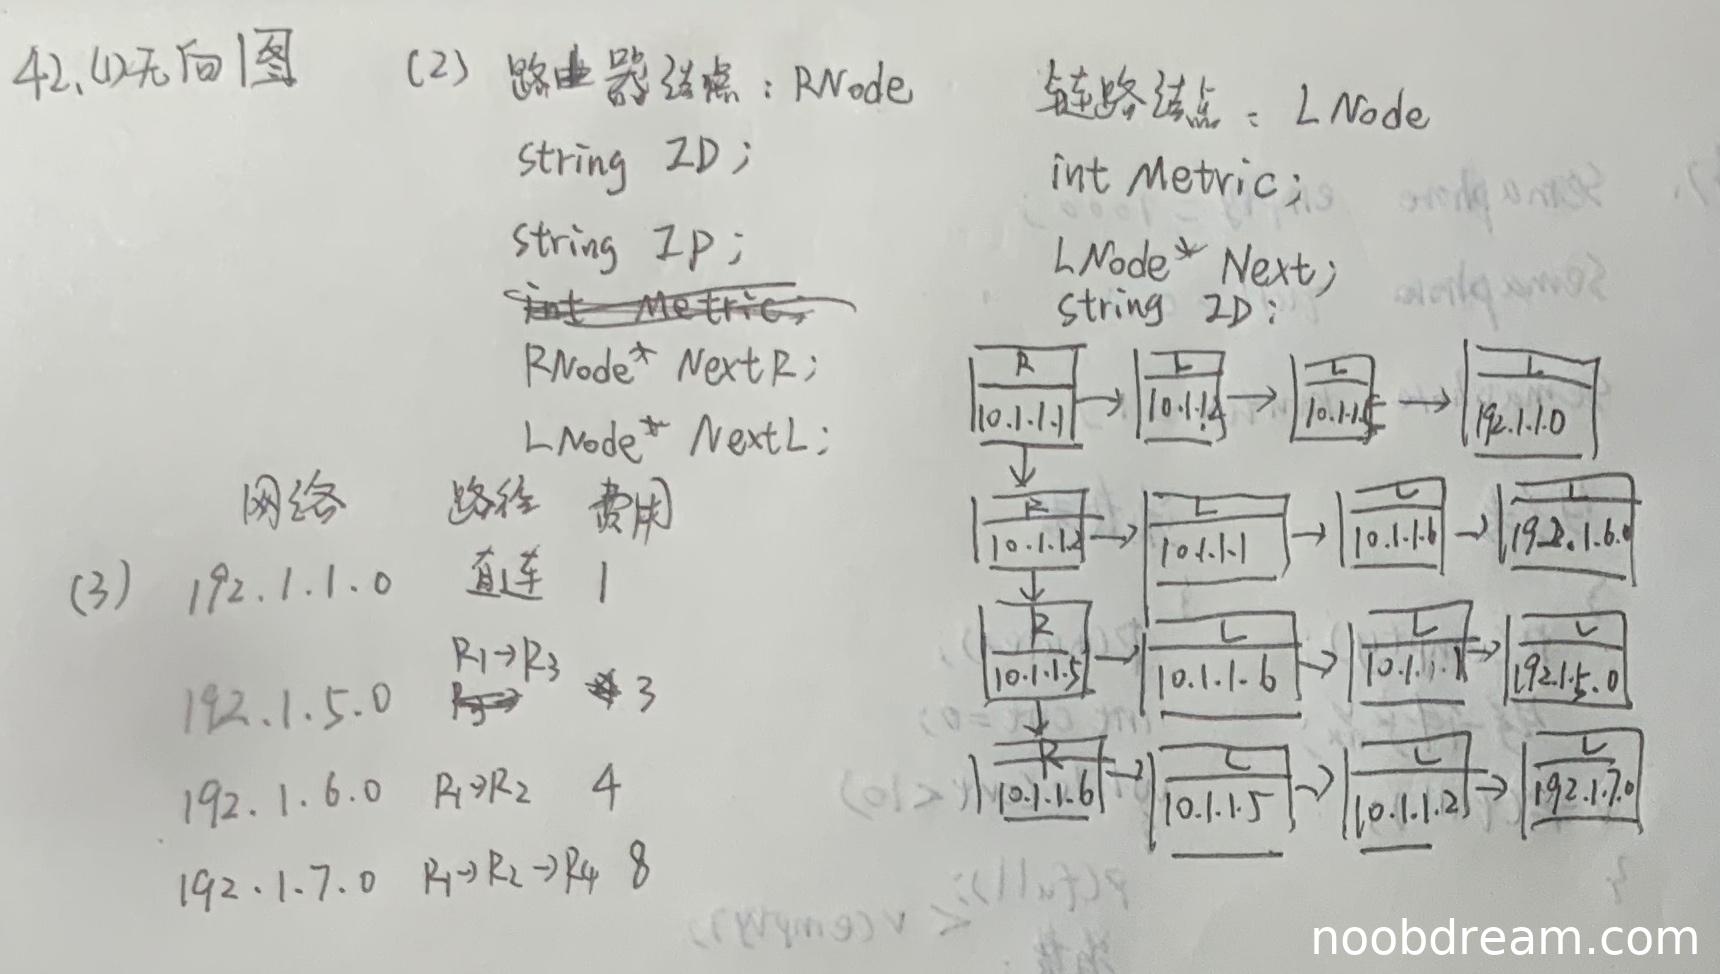 42. (1) 无向图
(2) 路由器结点: RNode
string ID;
string IP;
int Metric;
RNode* NextR;
LNode* NextL;
链路结点: LNode
int Metric;
LNode* Next;
string ID;
R L L L
10.1.1.1 → 10.1.1.2 → 10.1.1.5 → 192.1.1.0
R L L L
10.1.1.2 → 10.1.1.1 → 10.1.1.6 → 192.1.6.0
R L L L
10.1.1.5 → 10.1.1.6 → 10.1.1.1 → 192.1.5.0
R L L L
10.1.1.6 → 10.1.1.5 → 10.1.1.2 → 192.1.7.0
网络 路径 费用
(3) 192.1.1.0 直连 1
192.1.5.0 R1→R3 3
192.1.6.0 R1→R2 4
192.1.7.0 R1→R2→R4 8
noobdream.com